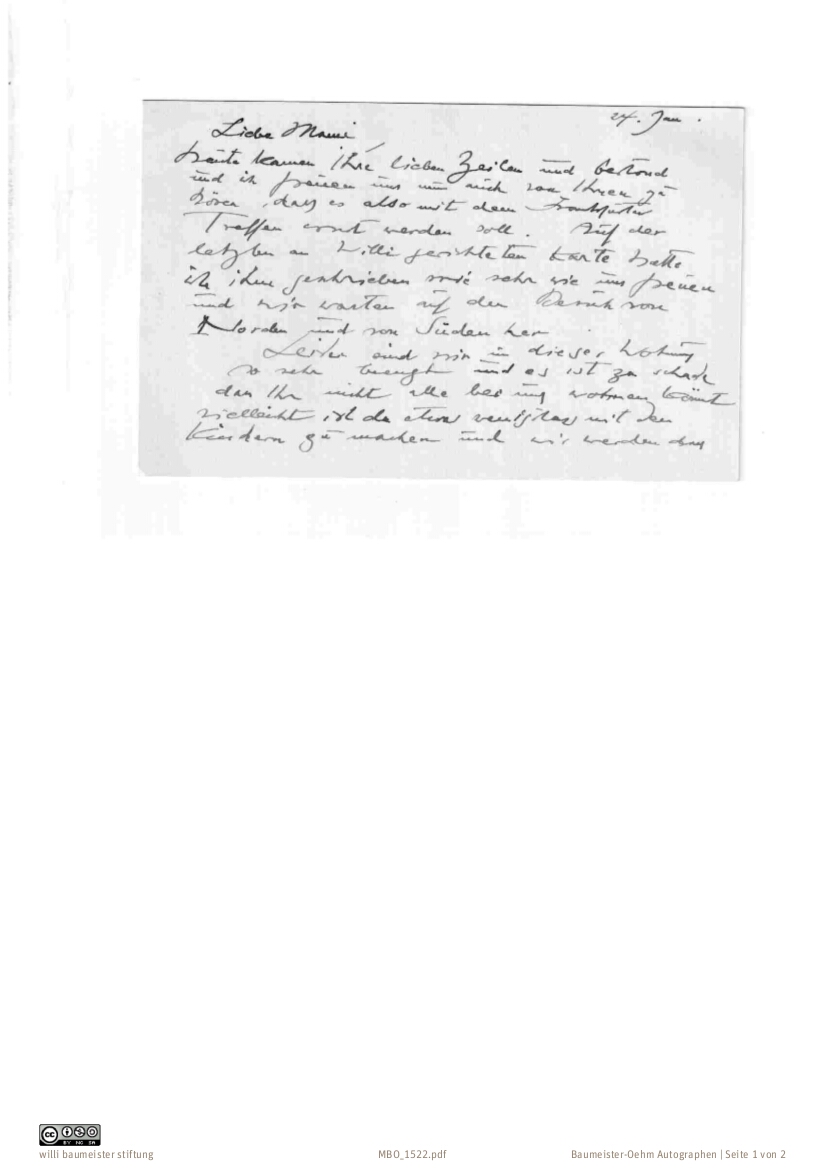 24. Jan.
Liebe Mami
heute kamen Ihre lieben Zeilen und Gertrud
und ich freuen uns nun auch von Ihnen zu
hören, dass es also mit dem Frankfurter
Treffen ernst werden soll. Auf der
letzten an Willi gerichteten Karte hatte
ich ihm geschrieben wie sehr wir uns freuen
und wir warten auf den Besuch von
Norden und von Süden her
Leider sind wir in dieser Wohnung
so sehr beengt und es ist zu schade
dass Ihr nicht alle bei uns wohnen könnt
vielleicht ist da etwas mit den
Kindern zu machen und wir werden das
BY NC SA
willi baumeister stiftung
MBO_1522.pdf
Baumeister-Oehm Autographen | Seite 1 von 2